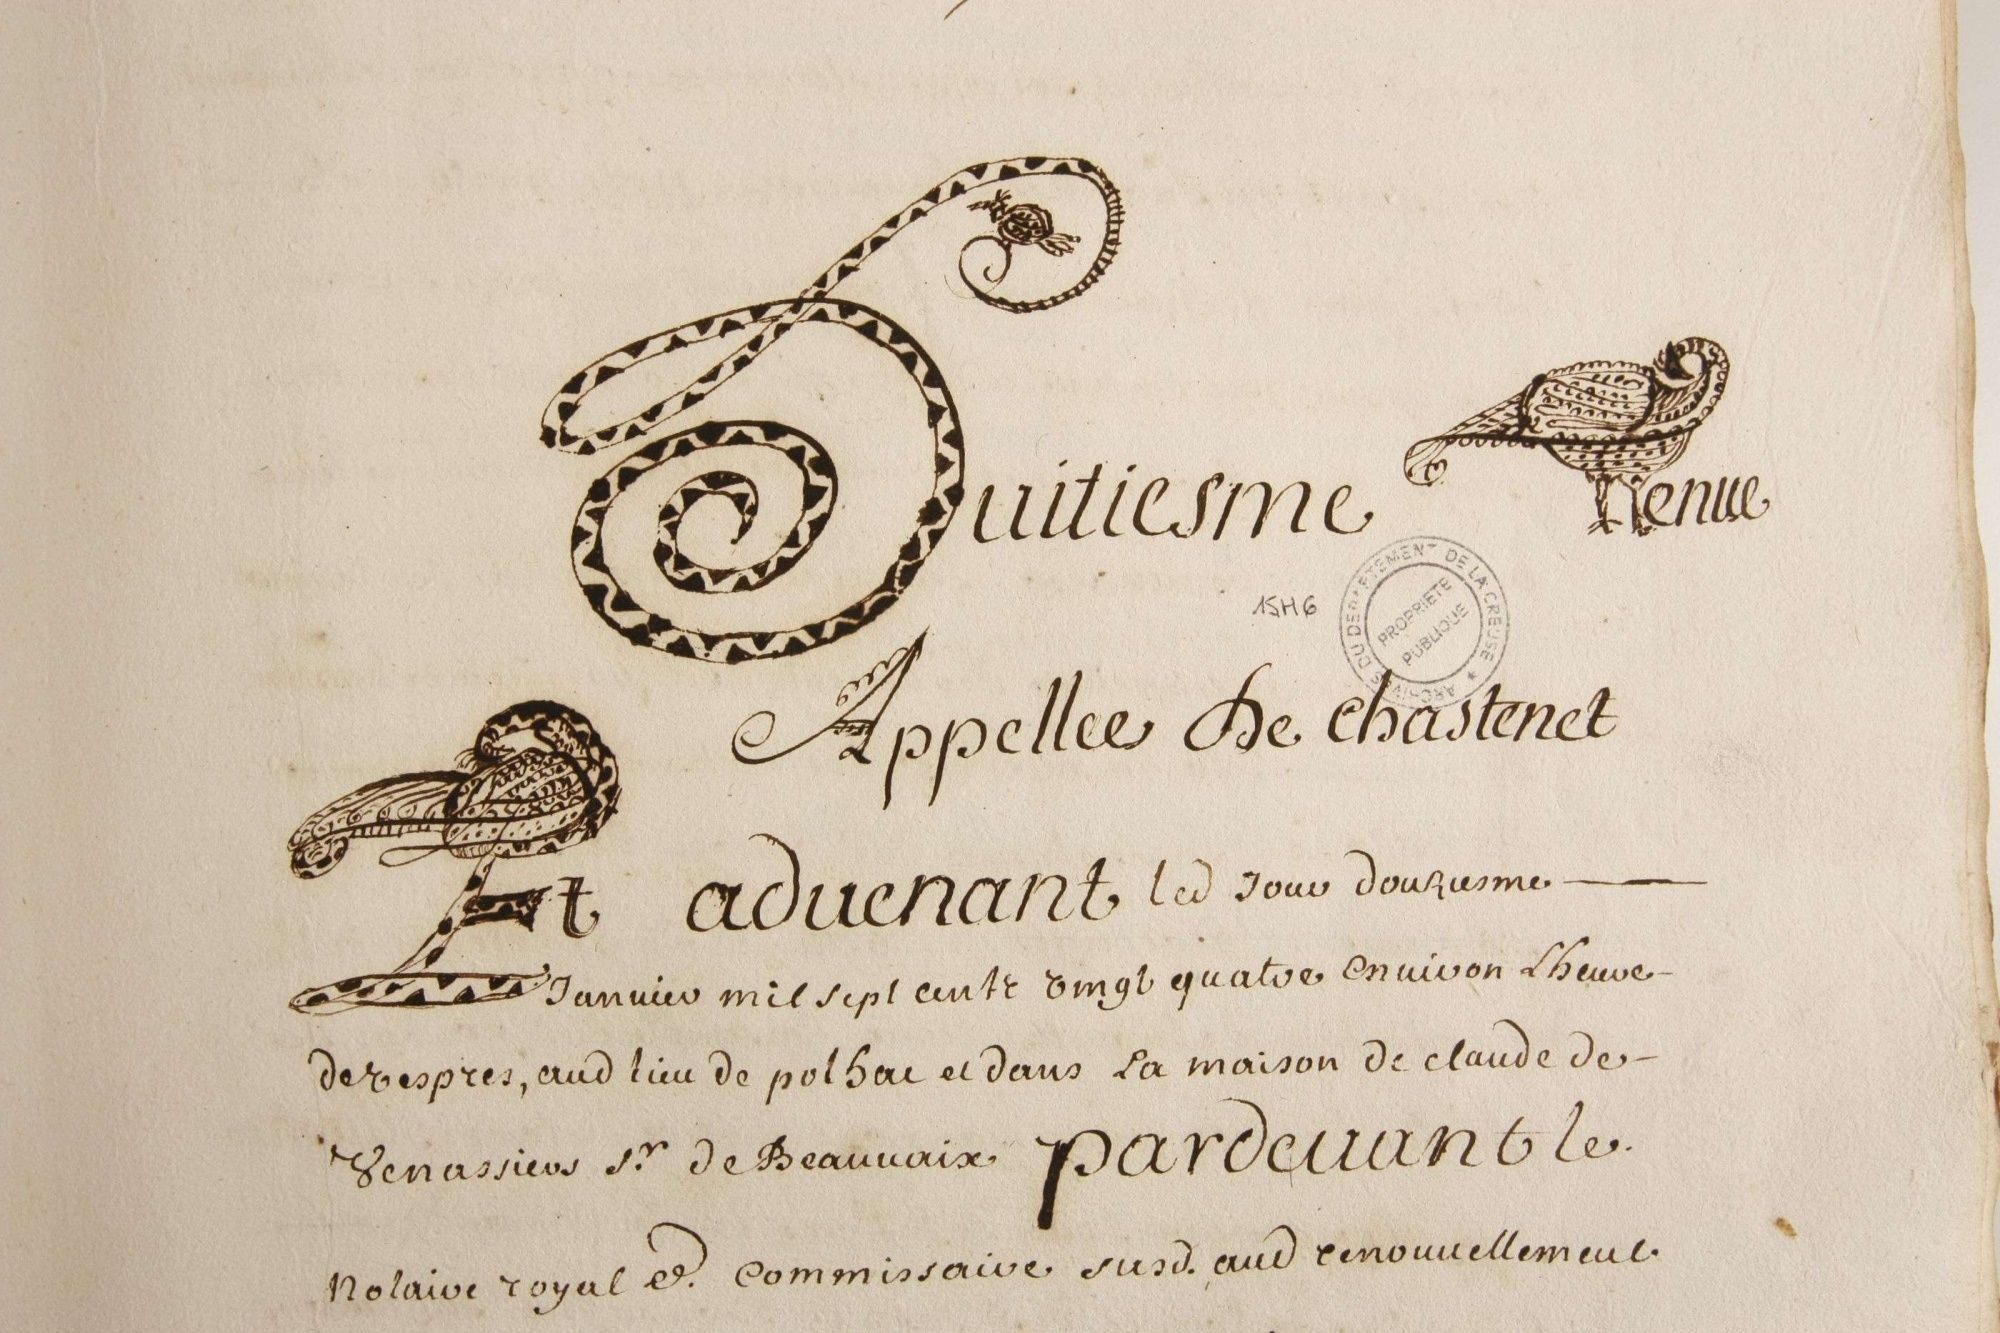 huitiesme Tenue
15H6
ARCHIVES DU DEPARTEMENT DE LA CREUSE
PROPRIETE PUBLIQUE
Appellee De chastenet
Et aduenant led Jour douziesme
Januier mil sept centz vingt quatre enuiron Lheure
de vespres, aud lieu de polhac et dans La maison de claude de
Venassiers Sr de Beauuaix pardeuant le
Notaire royal et commissaire susd. aud renouuellement